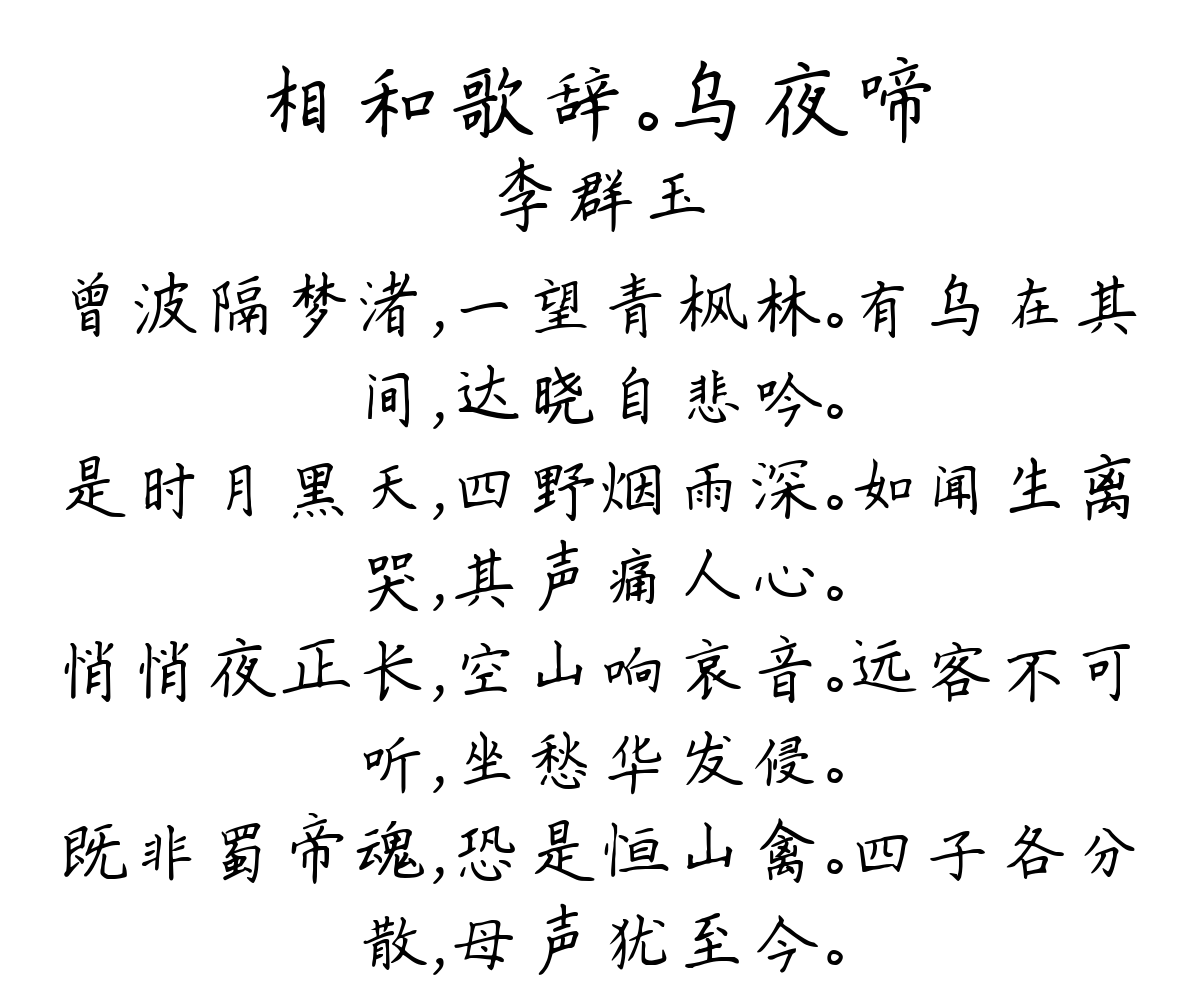 相和歌辞。乌夜啼
李群玉
曾波隔梦渚,一望青枫林。有乌在其
间,达晓自悲吟。
是时月黑天,四野烟雨深。如闻生离
哭,其声痛人心。
悄悄夜正长,空山响哀音。远客不可
听,坐愁华发侵。
既非蜀帝魂,恐是恒山禽。四子各分
散,母声犹至今。